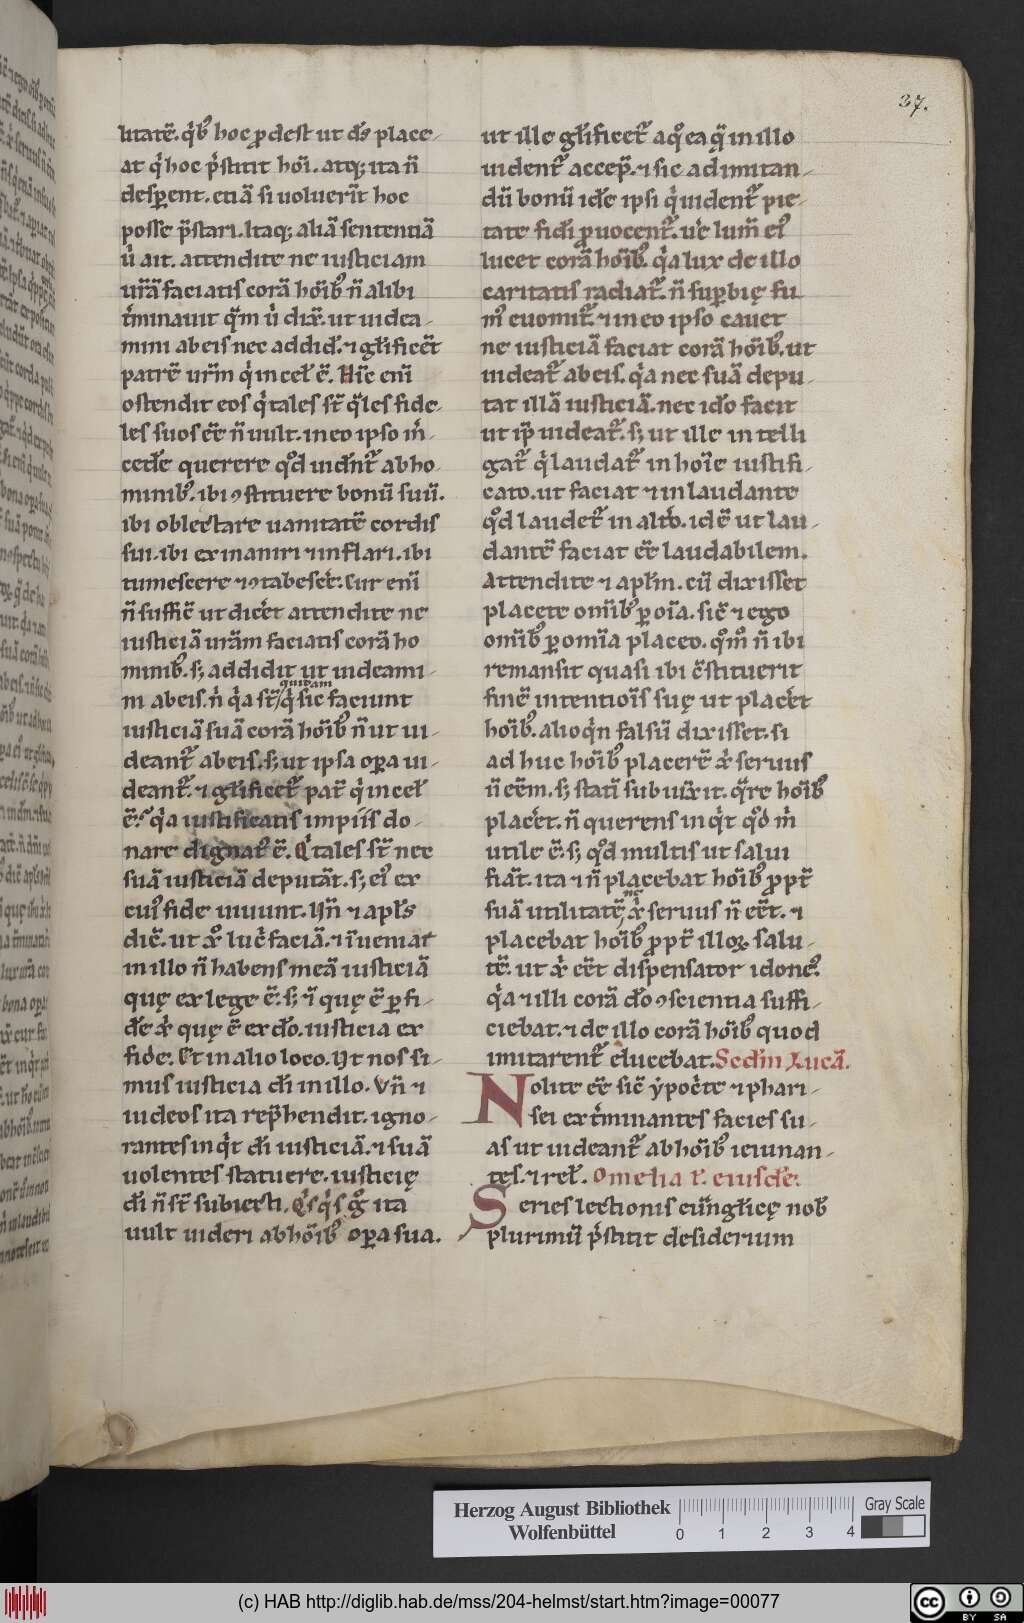 37.
litatē. q̇bꝰ hoc ꝓdest ut dſ̄ place-
at q̇ hoc p̄stitit hōi. atq; ita n̄
desꝑent. etiā si uoluerīt hoc
posse p̄stari. Itaq; aliā sententiā
u̇ ait. attendite ne iusticiam
ur̄ā faciatis corā hōibꝰ n̄ alibi
ṫminauit q̄m u̇ dix̄. ut uidea-
mini ab eis nec addid̄. ⁊ gl̄ificēt
patrē ur̄m q̇ in cel̄ ē. Hīc eni
ostendit eos q̇ tales st̄ q̄les fide-
les suos ēē n̄ uult. in eo ipso ṁ-
cedē querere qd̊ uidn̄t᷑ ab ho-
minibꝰ. ibi ꝯstituere bonū suū.
ibi oblectare uanitatē cordis
sui. ibi exinaniri ⁊ inflari. ibi
tumescere ⁊ ꝯtabescēr. Cur enī
n̄ suffic̄ ut dicėt attendite ne
iusticiā urām faciatis corā ho
minibꝰ. s; addidit ut uideami-
ni ab eis. n̄ q̇a st̄ q̇ sic faciunt
iusticiā suā corā hōibꝰ n̄ ut ui-
deant᷑ ab eis. s; ut ipsa oꝑa ui-
deant᷑. ⁊ gl̄ificet᷑ pat̄ q̇ in cel̄
ē. q̇a iustificatis impiis do-
nare dignatꝰ ē. Q̇ tales st̄ nec
suā iusticiā deputāt. s; eiꝰ ex
cuiꝰ fide uiuunt. Un̄ ⁊ apl̄s
dic̄. ut xp̊ luc̄ faciā. ⁊ īueniar
in illo n̄ habens meā iusticiā
quę ex lege ē. s; ī quę ē ꝑ fi-
dē xp̄i quę ē ex dō. iusticia ex
fide. Et in alio loco. Ut nos si-
mus iusticia dī in illo. Un̄ ⁊
iudeos ita rep̄hendit. igno-
rantes inq̇t dī iusticiā. ⁊ suā
uolentes statuere. iusticię
dī n̄ st̄ subiecti. Q̇sq̇s g̊ ita
uult uideri ab hōibꝰ oꝑa sua.
ut ille gl̄ificet᷑ a quo ea q̄ in illo
uident᷑ accep̄. ⁊ sic ad imitan-
dū bonū idē ipsi q̇ uident᷑ pie-
tate fidī ꝓuocent᷑. uē lum̄ eiꝰ
lucet corā hōibꝰ. q̇a lux de illo
caritatis radiat᷑. n̄ suꝑbię fu
mꝰ euomit᷑. ⁊ in eo ipso cauet
ne iusticiā faciat corā hōibꝰ. ut
uideat᷑ ab eis. q̇a nec suā depu-
tat illā iusticiā. nec idō facit
ut ip̄ uideat᷑. s; ut ille intelli
gat᷑ q̇ laudat᷑ in hoīe iustifi-
cato. ut faciat ⁊ in laudante
qd̊ laudet᷑ in altō. idē ut lau-
dantē faciat ēē laudabilem.
Attendite ⁊ apl̄m. cū dixisset
placete omībꝰ ꝑ oīa. sic̄ ⁊ ego
omībꝰ ꝑ omīa placeo. qm̊ n̄ ibi
remansit quasi ibi ꝯstituerit
finē intentiōis suę ut placėt
hōibꝰ. alioq̇n falsū dixisset. si
ad huc hōibꝰ placerē xp̄i seruus
n̄ eēm. s; stati subiūx̄it. q̄re hōibꝰ
placėt. n̄ querens inq̇t qd̊ ṁ
utile ē. s; qd̊ multis ut salui
fiāt. ita ⁊ n̄ placebat hōibꝰ ꝓpt̄
suā utilitatē, ne xp̄i seruus n̄ eēt. ⁊
placebat hōibꝰ ꝓpt̄ illoꝝ salu-
tē. ut xp̄i eēt dispensator idoneꝰ.
q̇a ⁊ illi corā dō ꝯscientia suffi-
ciebat. ⁊ de illo corā hōibꝰ quod
imitarent᷑ elucebat. Scdm Lucā.
Nolite ēē sic̄ ẏpoc̄te ⁊ phari-
sei exṫminantes facies su-
as ut uideant᷑ ab hōibꝰ ieiunan-
tes. ⁊ rel̄. Omelia t̄. eiusdē.
Series lectionis eūngl̄icę nobꝰ
plurimū p̄stitit desiderium
Herzog August Bibliothek
Wolfenbüttel
0 1 2 3 4
Gray Scale
(c) HAB http://diglib.hab.de/mss/204-helmst/start.htm?image=00077
cc BY SA